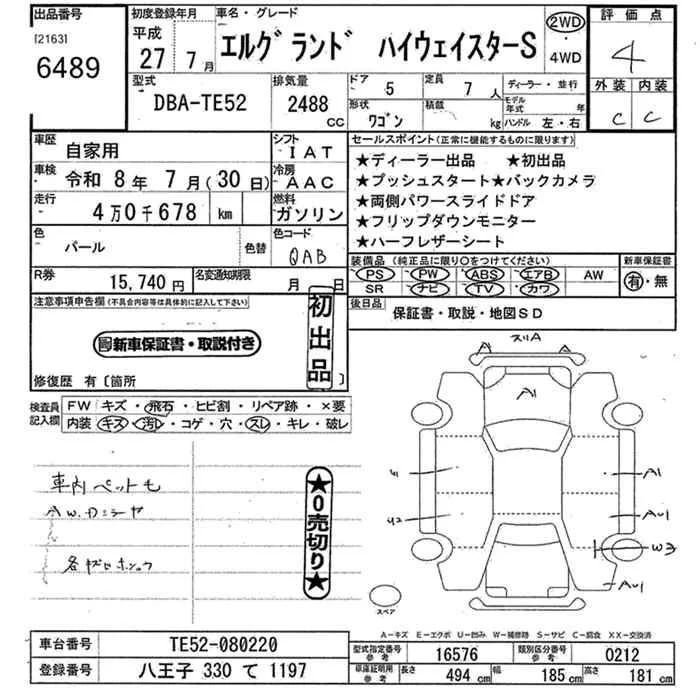 出品番号
[2163]
6489
初度登録年月
平成
27 7月
車名・グレード
エルグランド ハイウェイスターS
2WD
・
4WD
評価点
4
外装 内装
C C
型式
DBA-TE52
排気量
2488
CC
ドア
5
定員
7人
ディーラー・並行
形状
ワゴン
積載
kg
モデル年式
年
ハンドル 左・右
車歴
自家用
シフト
IAT
車検
令和 8年 7月(30日)
冷房
AAC
走行
4万0千678 km
燃料
ガソリン
色
パール
色替
色コード
QAB
R券
15,740円
名変通知期限
月 日
セールスポイント(正常に機能するものに限ります)
★ディーラー出品 ★初出品
★プッシュスタート★バックカメラ
★両側パワースライドドア
★フリップダウンモニター
★ハーフレザーシート
装備品(純正品に限り○をつけてください)
新車保証書
PS PW ABS エアB AW
SR ナビ TV カワ
有・無
後日品
保証書・取説・地図SD
注意事項申告欄(不具合内容等は具体的に記入して下さい)
新車保証書・取説付き
初出品
修復歴 有〔箇所 〕
検査員記入欄
FW キズ・飛石・ヒビ割・リペア跡・×要
内装 キズ・汚レ・コゲ・穴・スレ・キレ・破レ
車内ペットも
★0売切り★
スリA
A A
A1
A1
AU1
W3
AU1
U2
スペア
A−キズ E−エクボ U−凹み W−補修跡 S−サビ C−腐食 XX−交換済
車台番号
TE52-080220
登録番号
八王子 330 て 1197
型式指定番号
参考
16576
類別区分番号
参考
0212
車庫証明用
参考
長さ
494 cm
幅
185 cm
高さ
181 cm